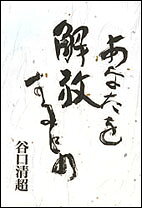 あなたを
解放
するため
谷口清超